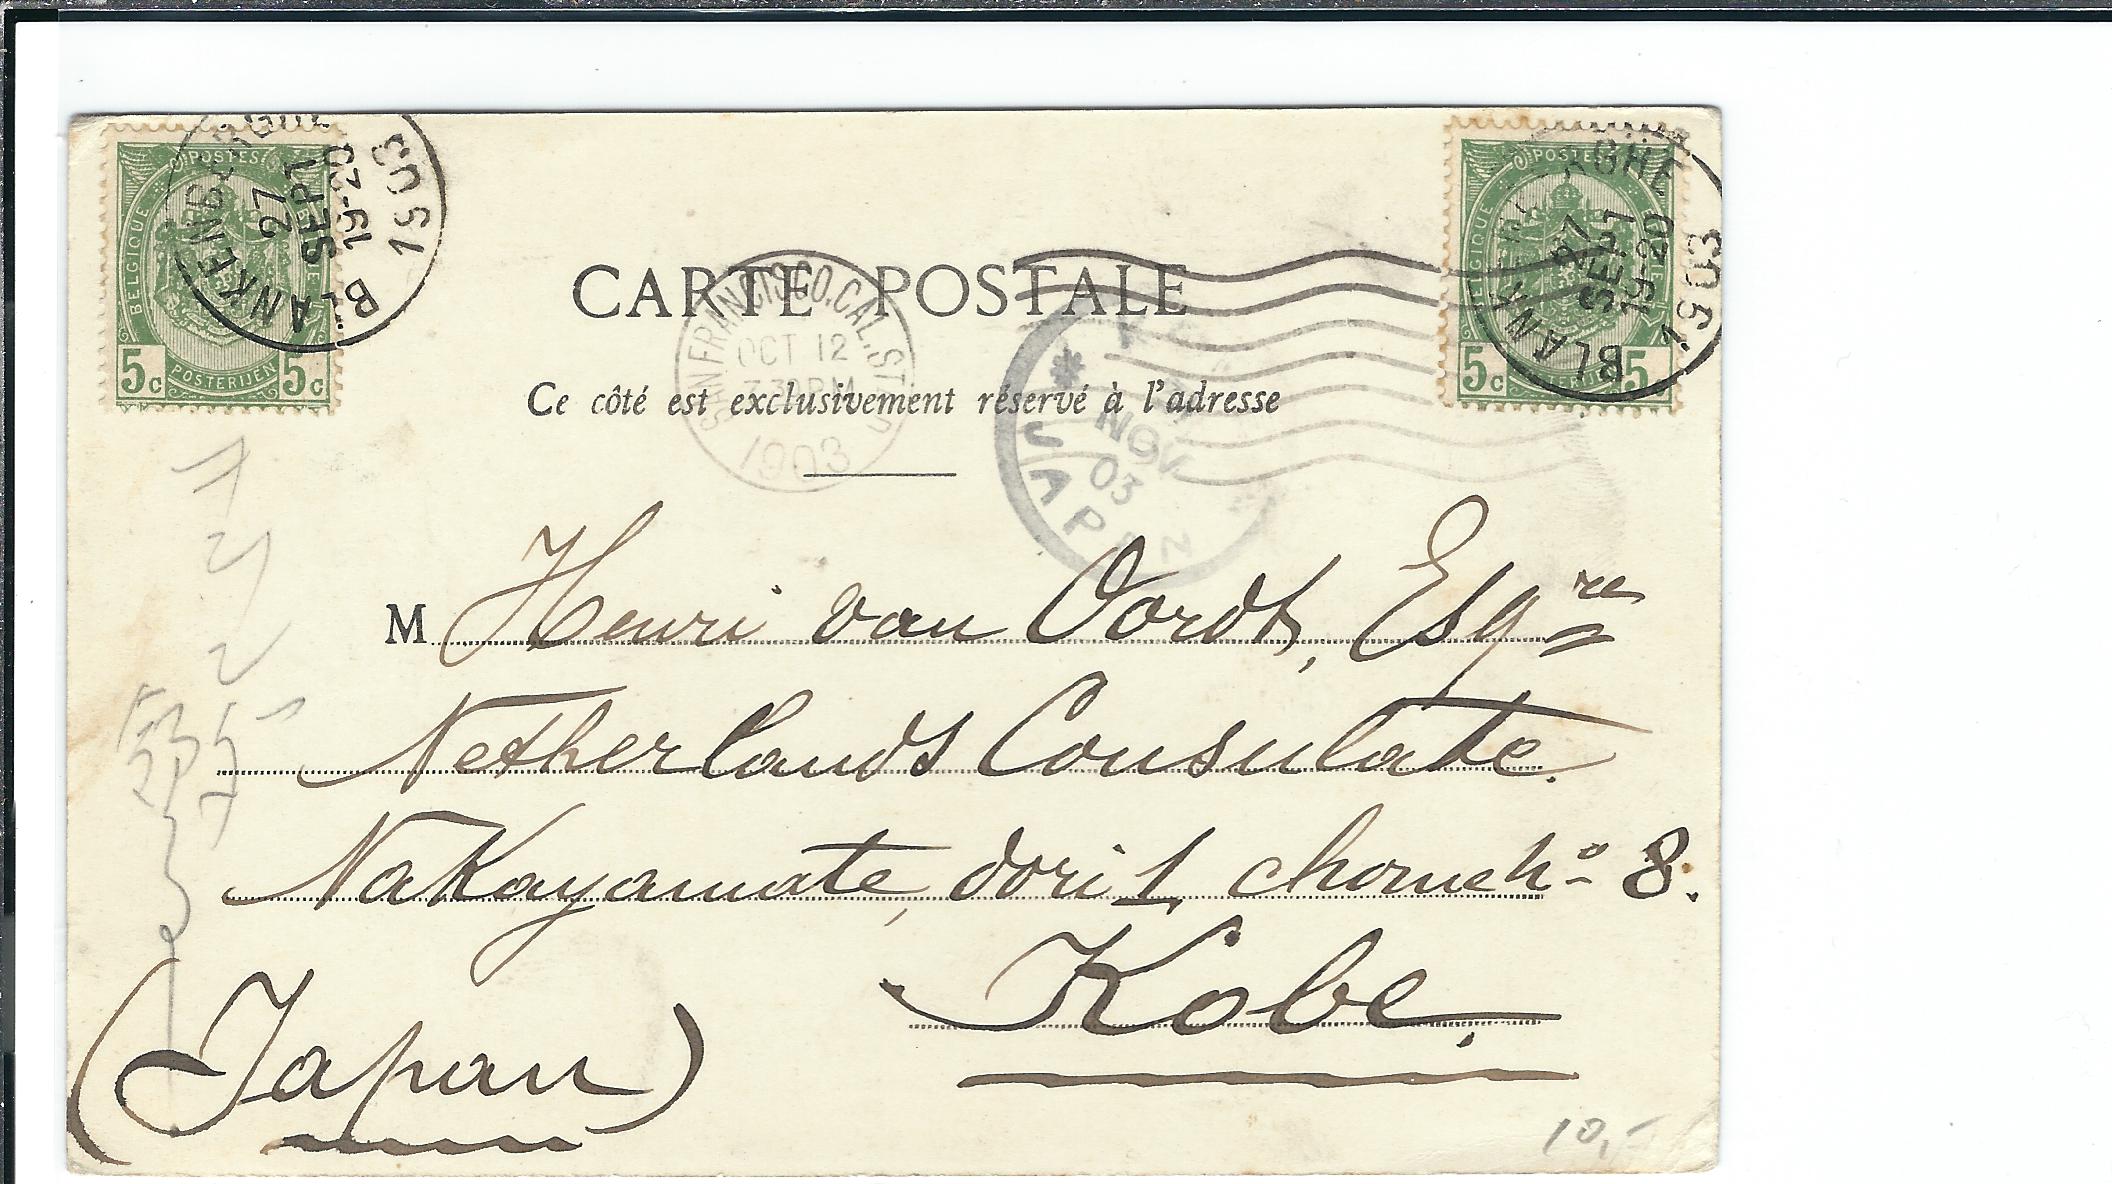 POSTES
BELGIQUE
5c POSTERIJEN 5c
BLANKENBERGHE
27
SEPT
19-20
1903
POSTES
BELGIQUE
5c POSTERIJEN 5
BLANKENBERGHE
27
SEPT
19-20
1903
CARTE POSTALE
SAN FRANCISCO, CAL.
OCT 12
7 30 PM
1903
Ce côté est exclusivement réservé à l'adresse
NOV
03
JAPAN
M Henri van Oordt, Esqre
Netherlands Consulate.
Nakayamate, dori 1 chome No 8.
Kobe.
(Japan)
10,-